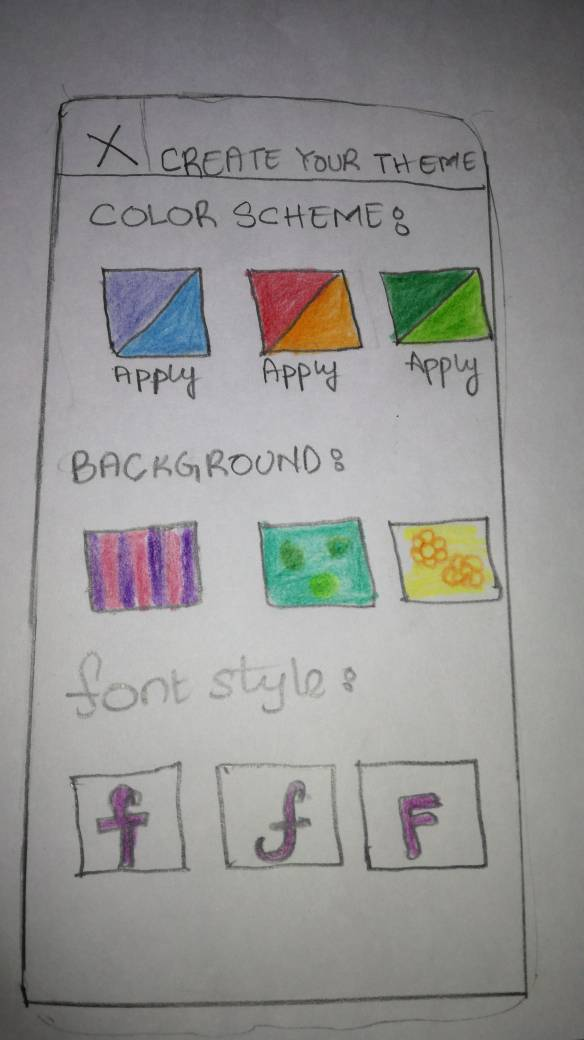 X CREATE YOUR THEME
COLOR SCHEME:
Apply Apply Apply
BACKGROUND:
font style:
f f F